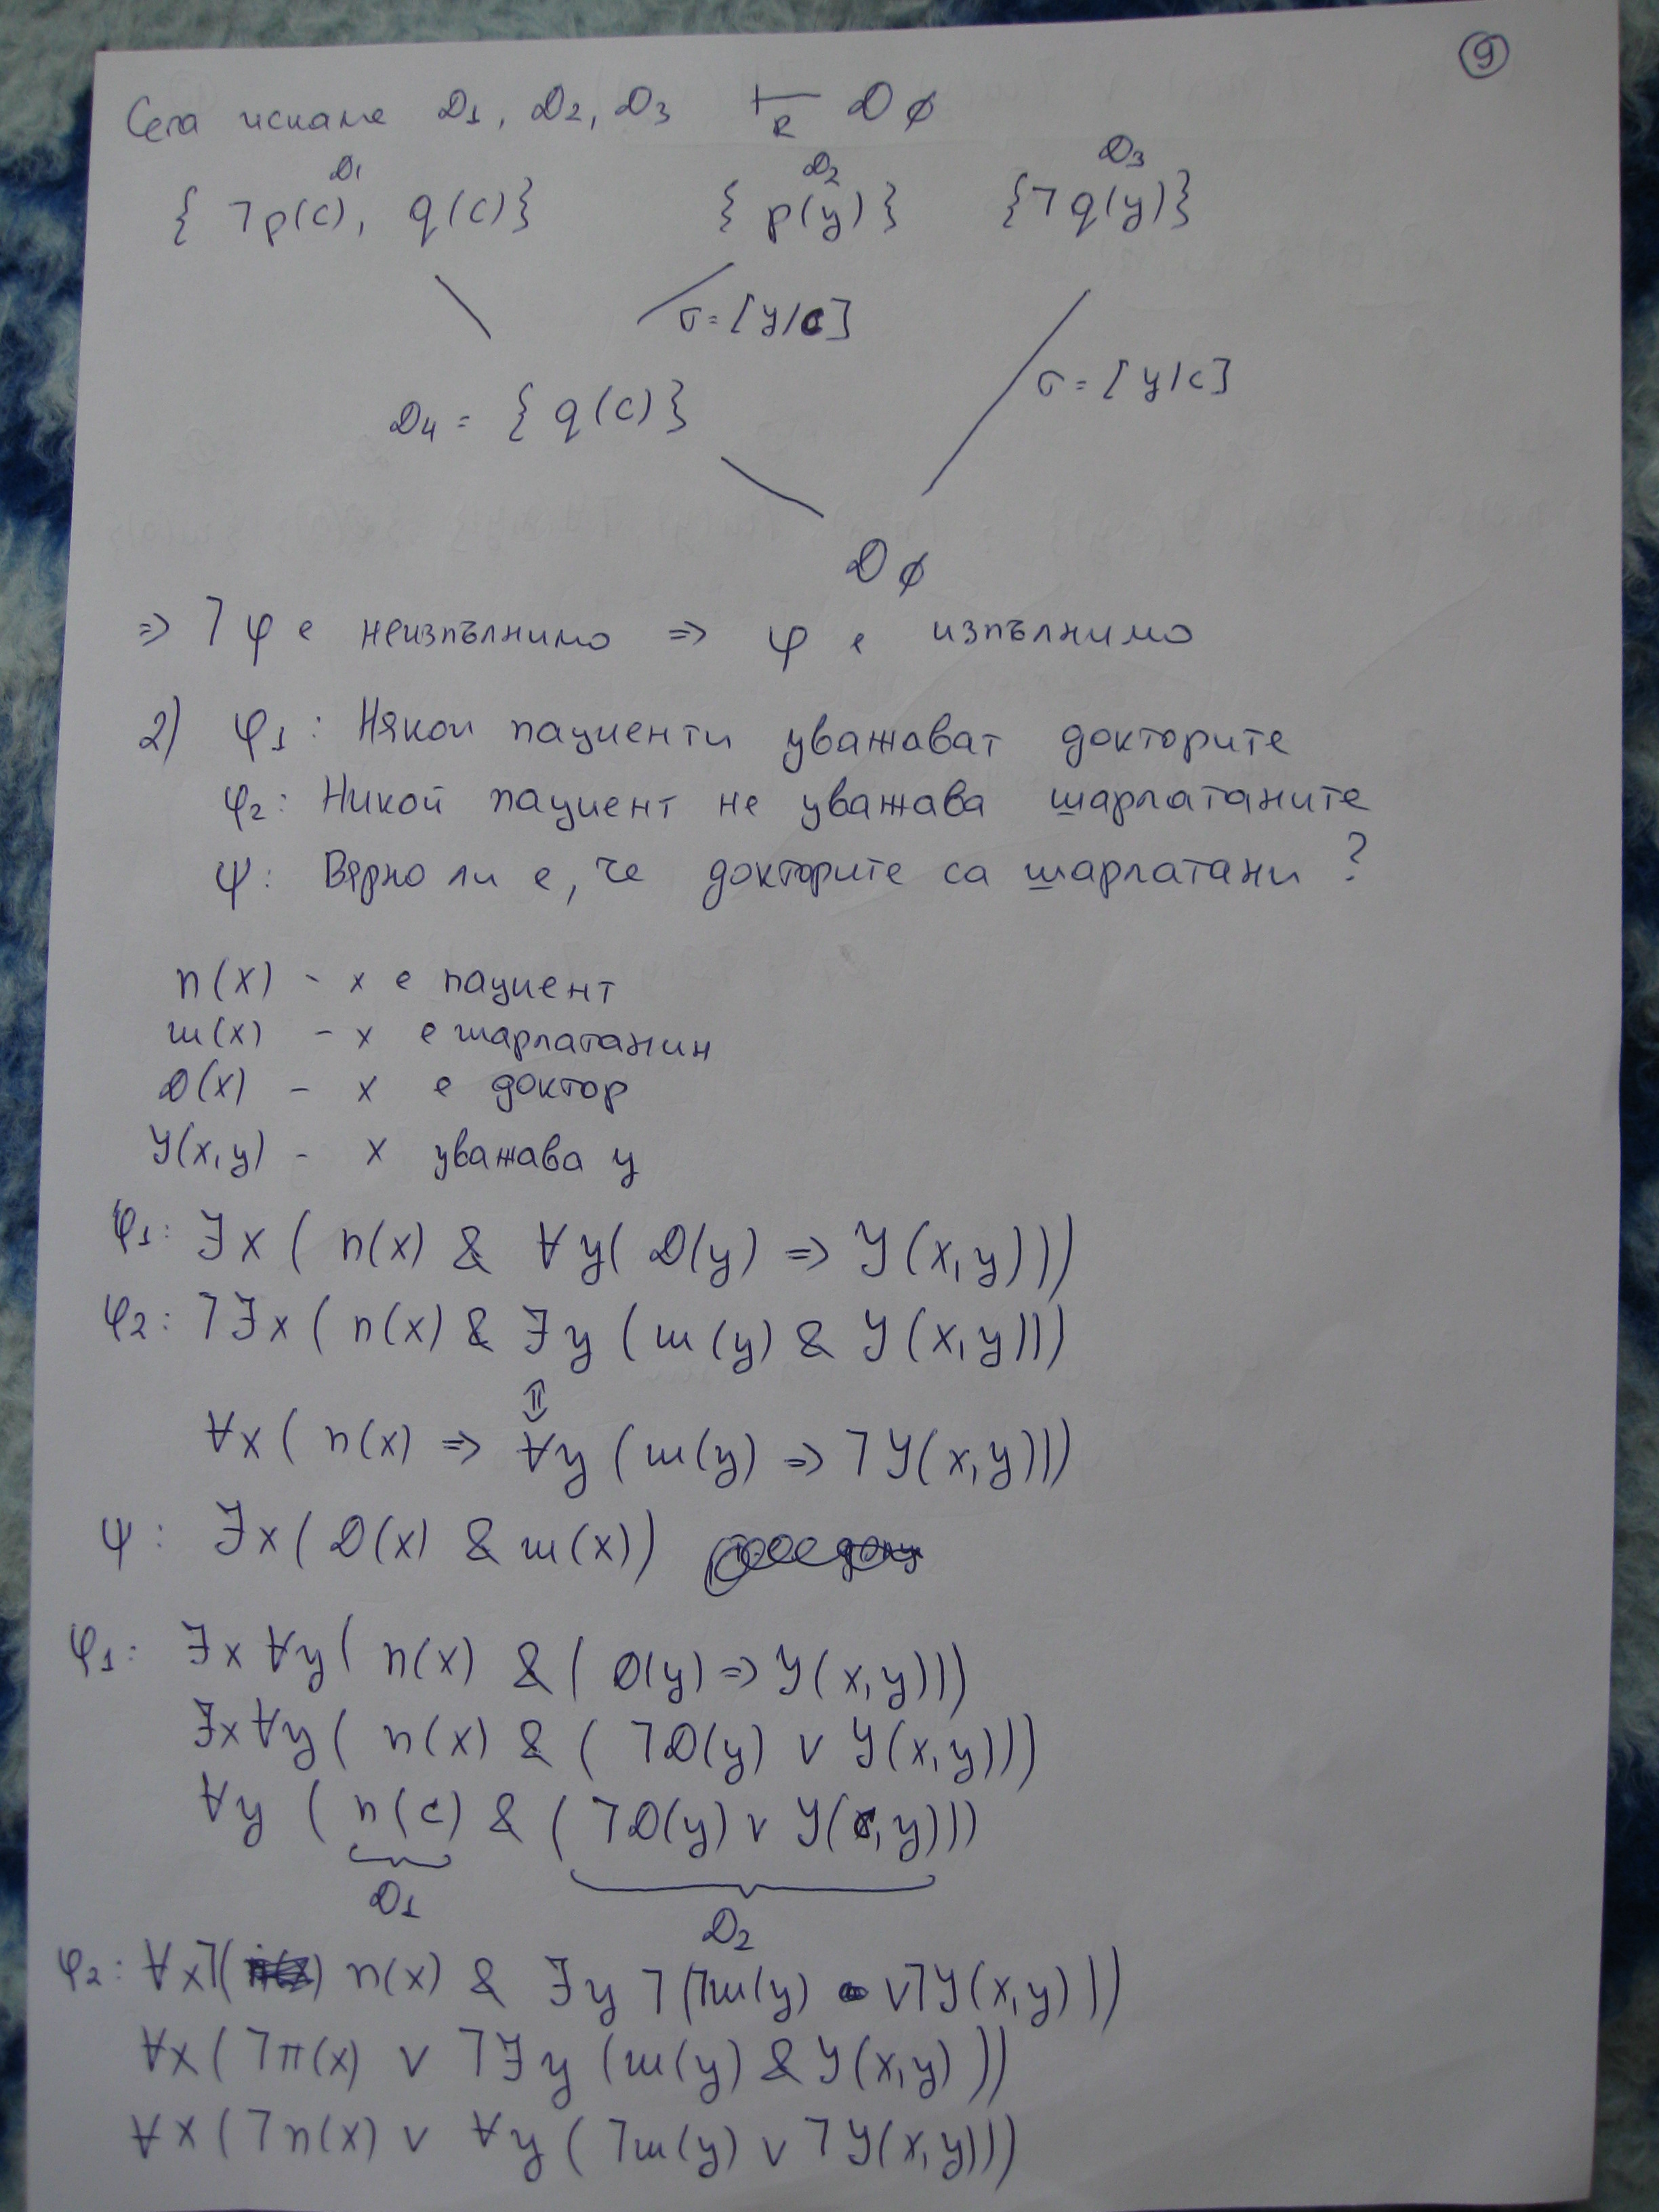 9
Сега искаме D1, D2, D3 ⊢R D∅
D1 D2 D3
{ ¬p(c), q(c)} { p(y)} {¬q(y)}
σ=[y/c]
σ=[y/c]
D4 = { q(c)}
D∅
⇒ ¬φ е неизпълнимо ⇒ φ е изпълнимо
2) φ1: Някои пациенти уважават докторите
φ2: Никой пациент не уважава шарлатаните
ψ: Вярно ли е, че докторите са шарлатани?
п(x) - x е пациент
ш(x) - x е шарлатанин
D(x) - x е доктор
У(x,y) - x уважава y
φ1: ∃x ( п(x) & ∀y( D(y) ⇒ У(x,y)))
φ2: ¬∃x ( п(x) & ∃y ( ш(y) & У(x,y)))
⇔
∀x ( п(x) ⇒ ∀y ( ш(y) ⇒ ¬У(x,y)))
ψ: ∃x ( D(x) & ш(x))
φ1: ∃x ∀y ( п(x) & ( D(y) ⇒ У(x,y)))
∃x ∀y ( п(x) & ( ¬D(y) ∨ У(x,y)))
∀y ( п(c) & ( ¬D(y) ∨ У(c,y)))
D1 D2
φ2: ∀x¬( п(x) & ∃y ¬(¬ш(y) ∨¬У(x,y)))
∀x ( ¬π(x) ∨ ¬∃y (ш(y) & У(x,y)))
∀x (¬п(x) ∨ ∀y ( ¬ш(y) ∨ ¬У(x,y)))